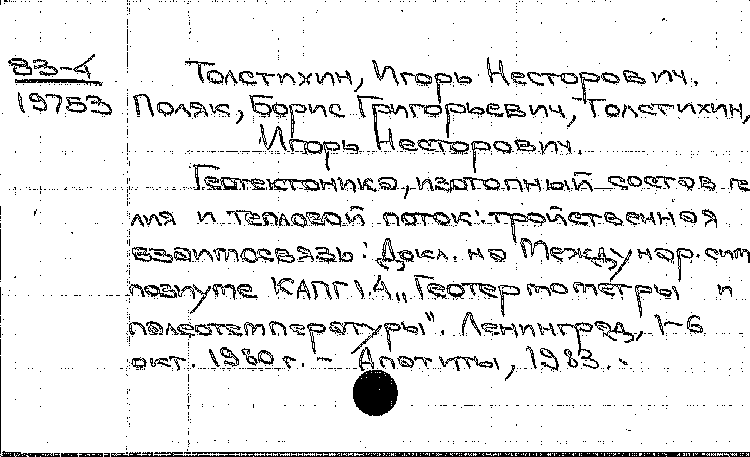 83-4
19753
Толстихин, Игорь Несторович.
Поляк, Борис Григорьевич, Толстихин,
Игорь Несторович.
Геотектоника, изотопный состав ге
лия и тепловой поток: тройственная
взаимосвязь: Докл. на Междунар. сим
позиуме КАПГ I.A „Геотермометры и
палеотемпературы". Ленинград, 1-6
окт. 1980 г. - Апатиты, 1983. -